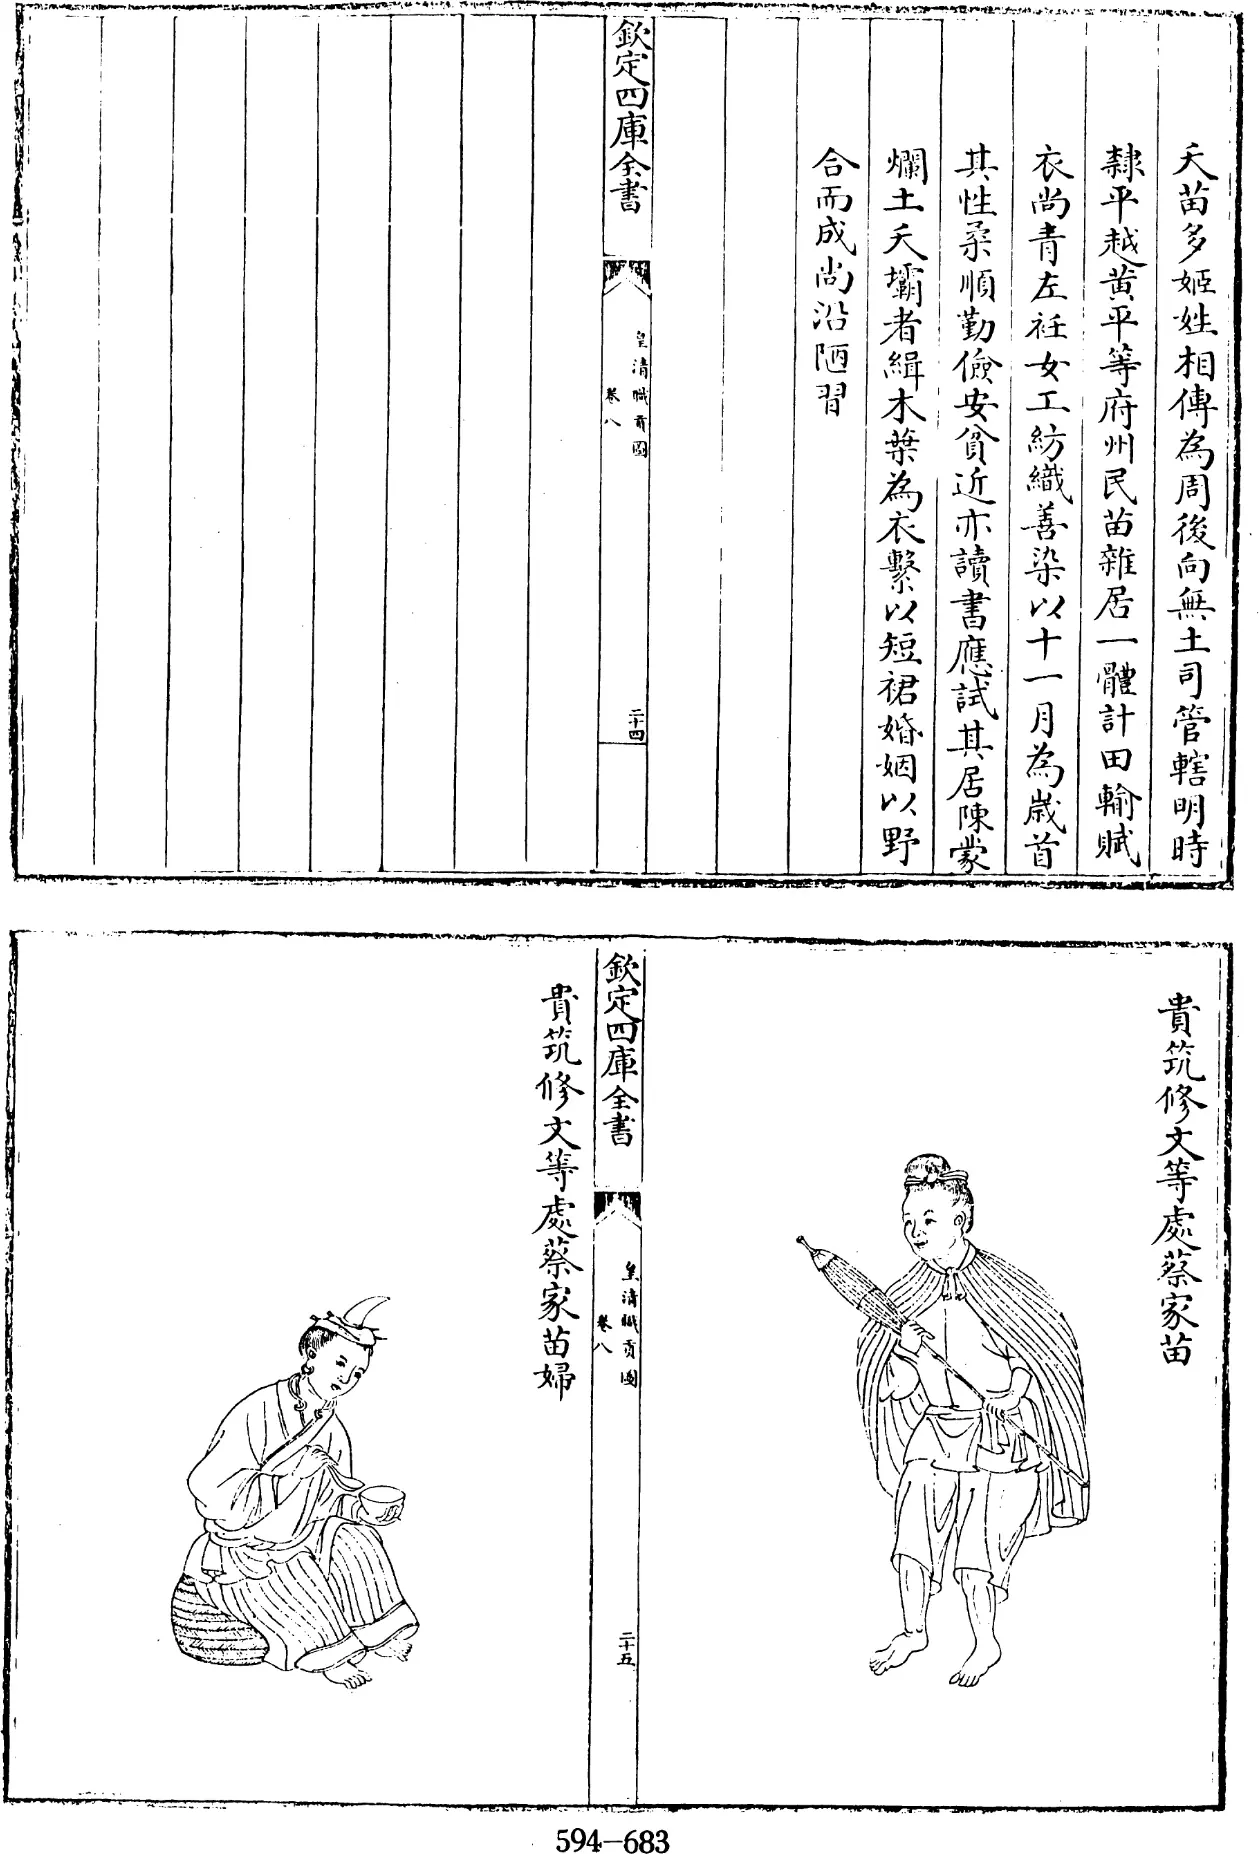 夭苗多姬姓相傳為周後向無土司管轄明時
隸平越黄平等府州民苗雜居一體計田輸賦
衣尚青左衽女工紡織善染以十一月為嵗首
其性柔順勤儉安貧近亦讀書應試其居陳蒙
爛土夭壩者緝木葉為衣繫以短裙婚姻以野
合而成尚沿陋習
欽定四庫全書
皇清職貢圖
卷八
二十四
貴筑修文等處蔡家苗
欽定四庫全書
皇清職貢圖
卷八
二十五
貴筑修文等處蔡家苗婦
594-683